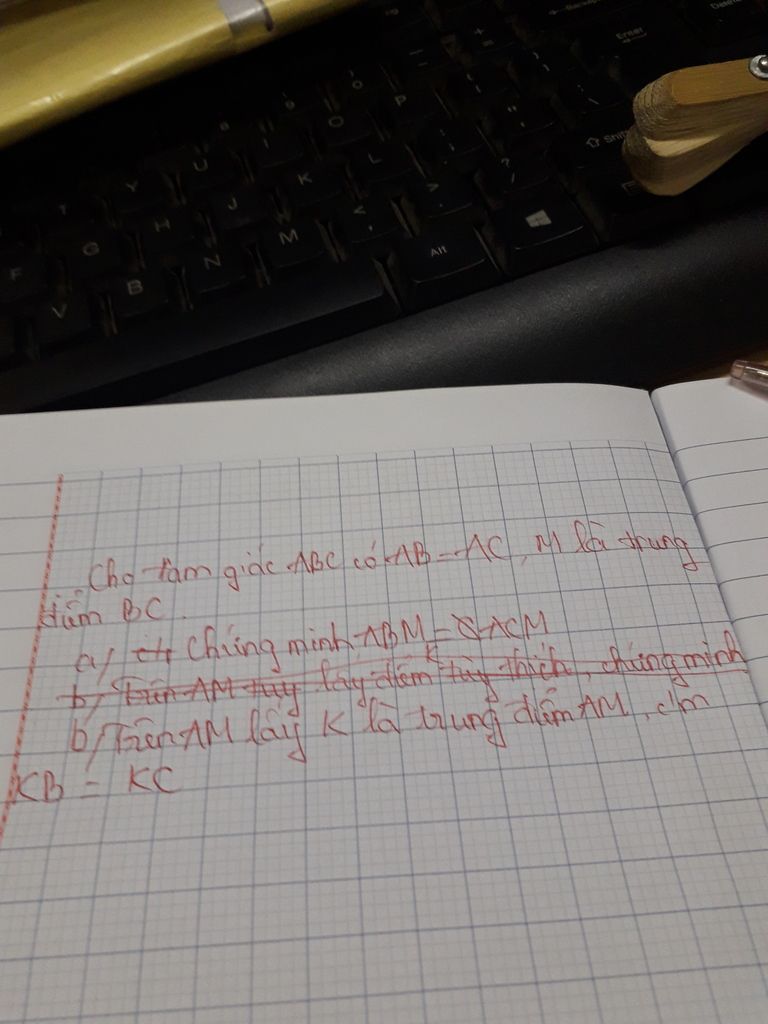 Delete
Enter
Shift
Y U I O P
F G H J K L
V B N M
Alt
Cho tam giác ABC có AB = AC, M là trung
điểm BC.
a/ Chứng minh ABM = ACM
b/ Trên AM tùy lấy điểm K tùy thích, chứng minh
b/ Trên AM lấy K là trung điểm AM, c/m
KB = KC